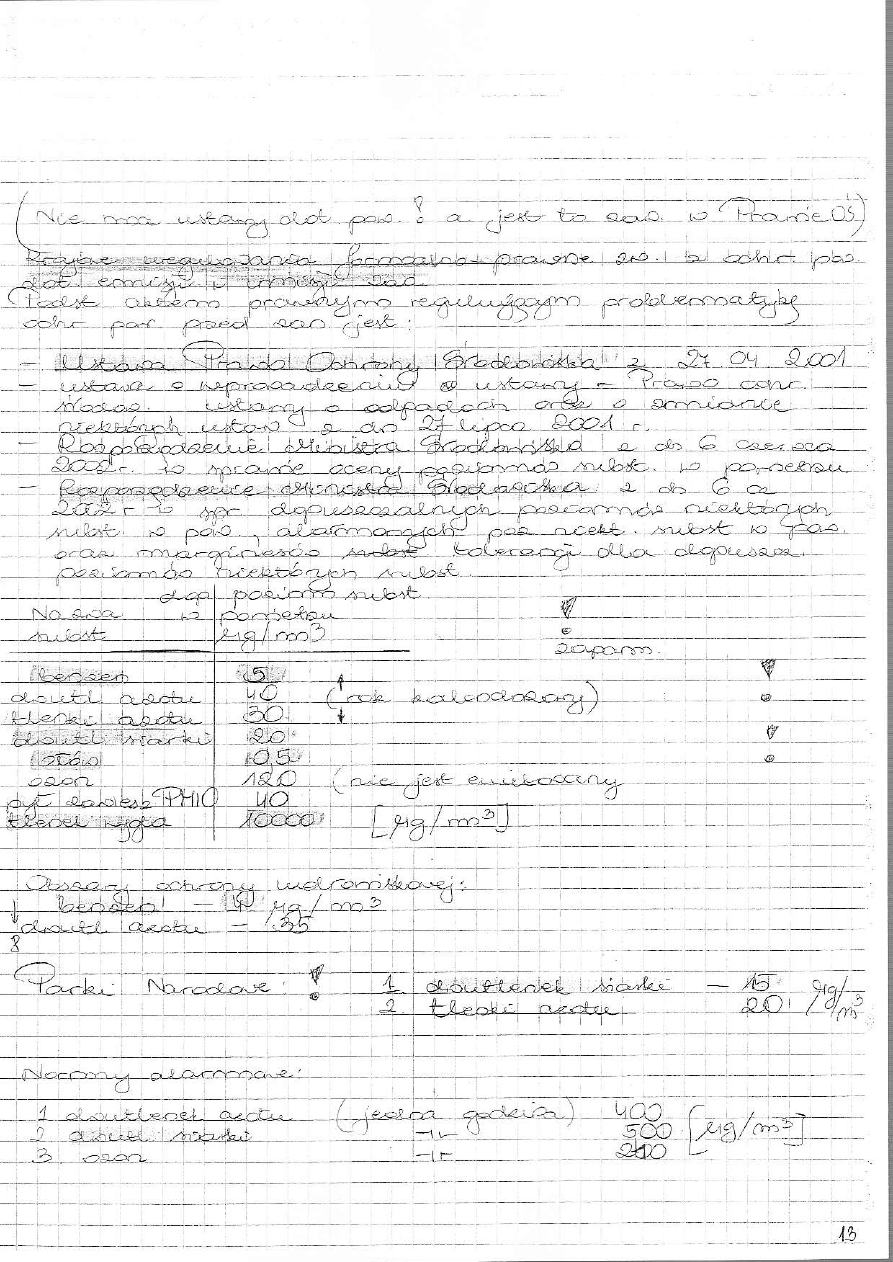 (Nie ma ustawy dot pow. ! a jest to zaw. w Prawie OŚ)
Krajowe uregulowania formalno-prawne zw. z ochr. pow.
dot emisji i imisji zan
Podst aktem prawnym regulującym problematykę
ochr pow przed zan jest:
- Ustawa Prawo Ochrony Środowiska z 27 04 2001
- ustawa o wprowadzeniu ustawy - Prawo ochr.
środow. ustawy o odpadach oraz o zmianie
niektórych ustaw z dn 27 lipca 2001 r.
- Rozporządzenie Ministra Środowiska z dn 6 czerwca
2002r. w sprawie oceny poziomów subst. w powietrzu
- Rozporządzenie Ministra Środowiska z dn 6 cz
2002 r w spr dopuszczalnych poziomów niektórych
subst. w pow, alarmowych poz niekt. subst w pow.
oraz marginesów subst tolerancji dla dopuszcz.
poziomów niektórych subst.
Nazwa subst | dop poziom subst w powietrzu µg/m3
! zapam.
benzen 5
dwutl azotu 40 (rok kalendarzowy)
tlenki azotu 30
dwutl siarki 20
ołów 0,5
ozon 120 (nie jest emitowany
pył zawiesz PM10 40
tlenek węgla 10000 [µg/m3]
Obszary ochrony uzdrowiskowej:
benzen - 4 µg/m3
dwutl azotu - 35
Parki Narodowe: ! 1 dwutlenek siarki - 15 µg/m3
2 tlenki azotu 20
Normy alarmowe:
1 dwutlenek azotu (jedna godzina) 400
2 dwutl siarki -||- 500 [µg/m3]
3 ozon -||- 240
13